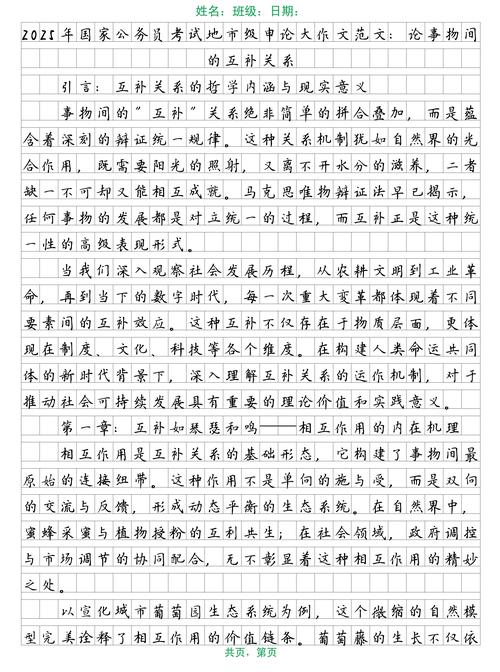 姓名：班级：日期：
2025年国家公务员考试地市级申论大作文范文：论事物间
的互补关系
引言：互补关系的哲学内涵与现实意义
事物间的“互补”关系绝非简单的拼合叠加，而是蕴
含着深刻的辩证统一规律。这种关系机制犹如自然界的光
合作用，既需要阳光的照射，又离不开水分的滋养，二者
缺一不可却又能相互成就。马克思唯物辩证法早已揭示，
任何事物的发展都是对立统一的过程，而互补正是这种统
一性的高级表现形式。
当我们深入观察社会发展历程，从农耕文明到工业革
命，再到当下的数字时代，每一次重大变革都体现着不同
要素间的互补效应。这种互补不仅存在于物质层面，更体
现在制度、文化、科技等各个维度。在构建人类命运共同
体的新时代背景下，深入理解互补关系的运作机制，对于
推动社会可持续发展具有重要的理论价值和实践意义。
第一章：互补如琴瑟和鸣——相互作用的内在机理
相互作用是互补关系的基础形态，它构建了事物间最
原始的连接纽带。这种作用不是单向的施与受，而是双向
的交流与反馈，形成动态平衡的生态系统。在自然界中，
蜜蜂采蜜与植物授粉的互利共生；在社会领域，政府调控
与市场调节的协同配合，无不彰显着这种相互作用的精妙
之处。
以宣化城市葡萄园生态系统为例，这个微缩的自然模
型完美诠释了相互作用的价值链条。葡萄藤的生长不仅依
共页，第页